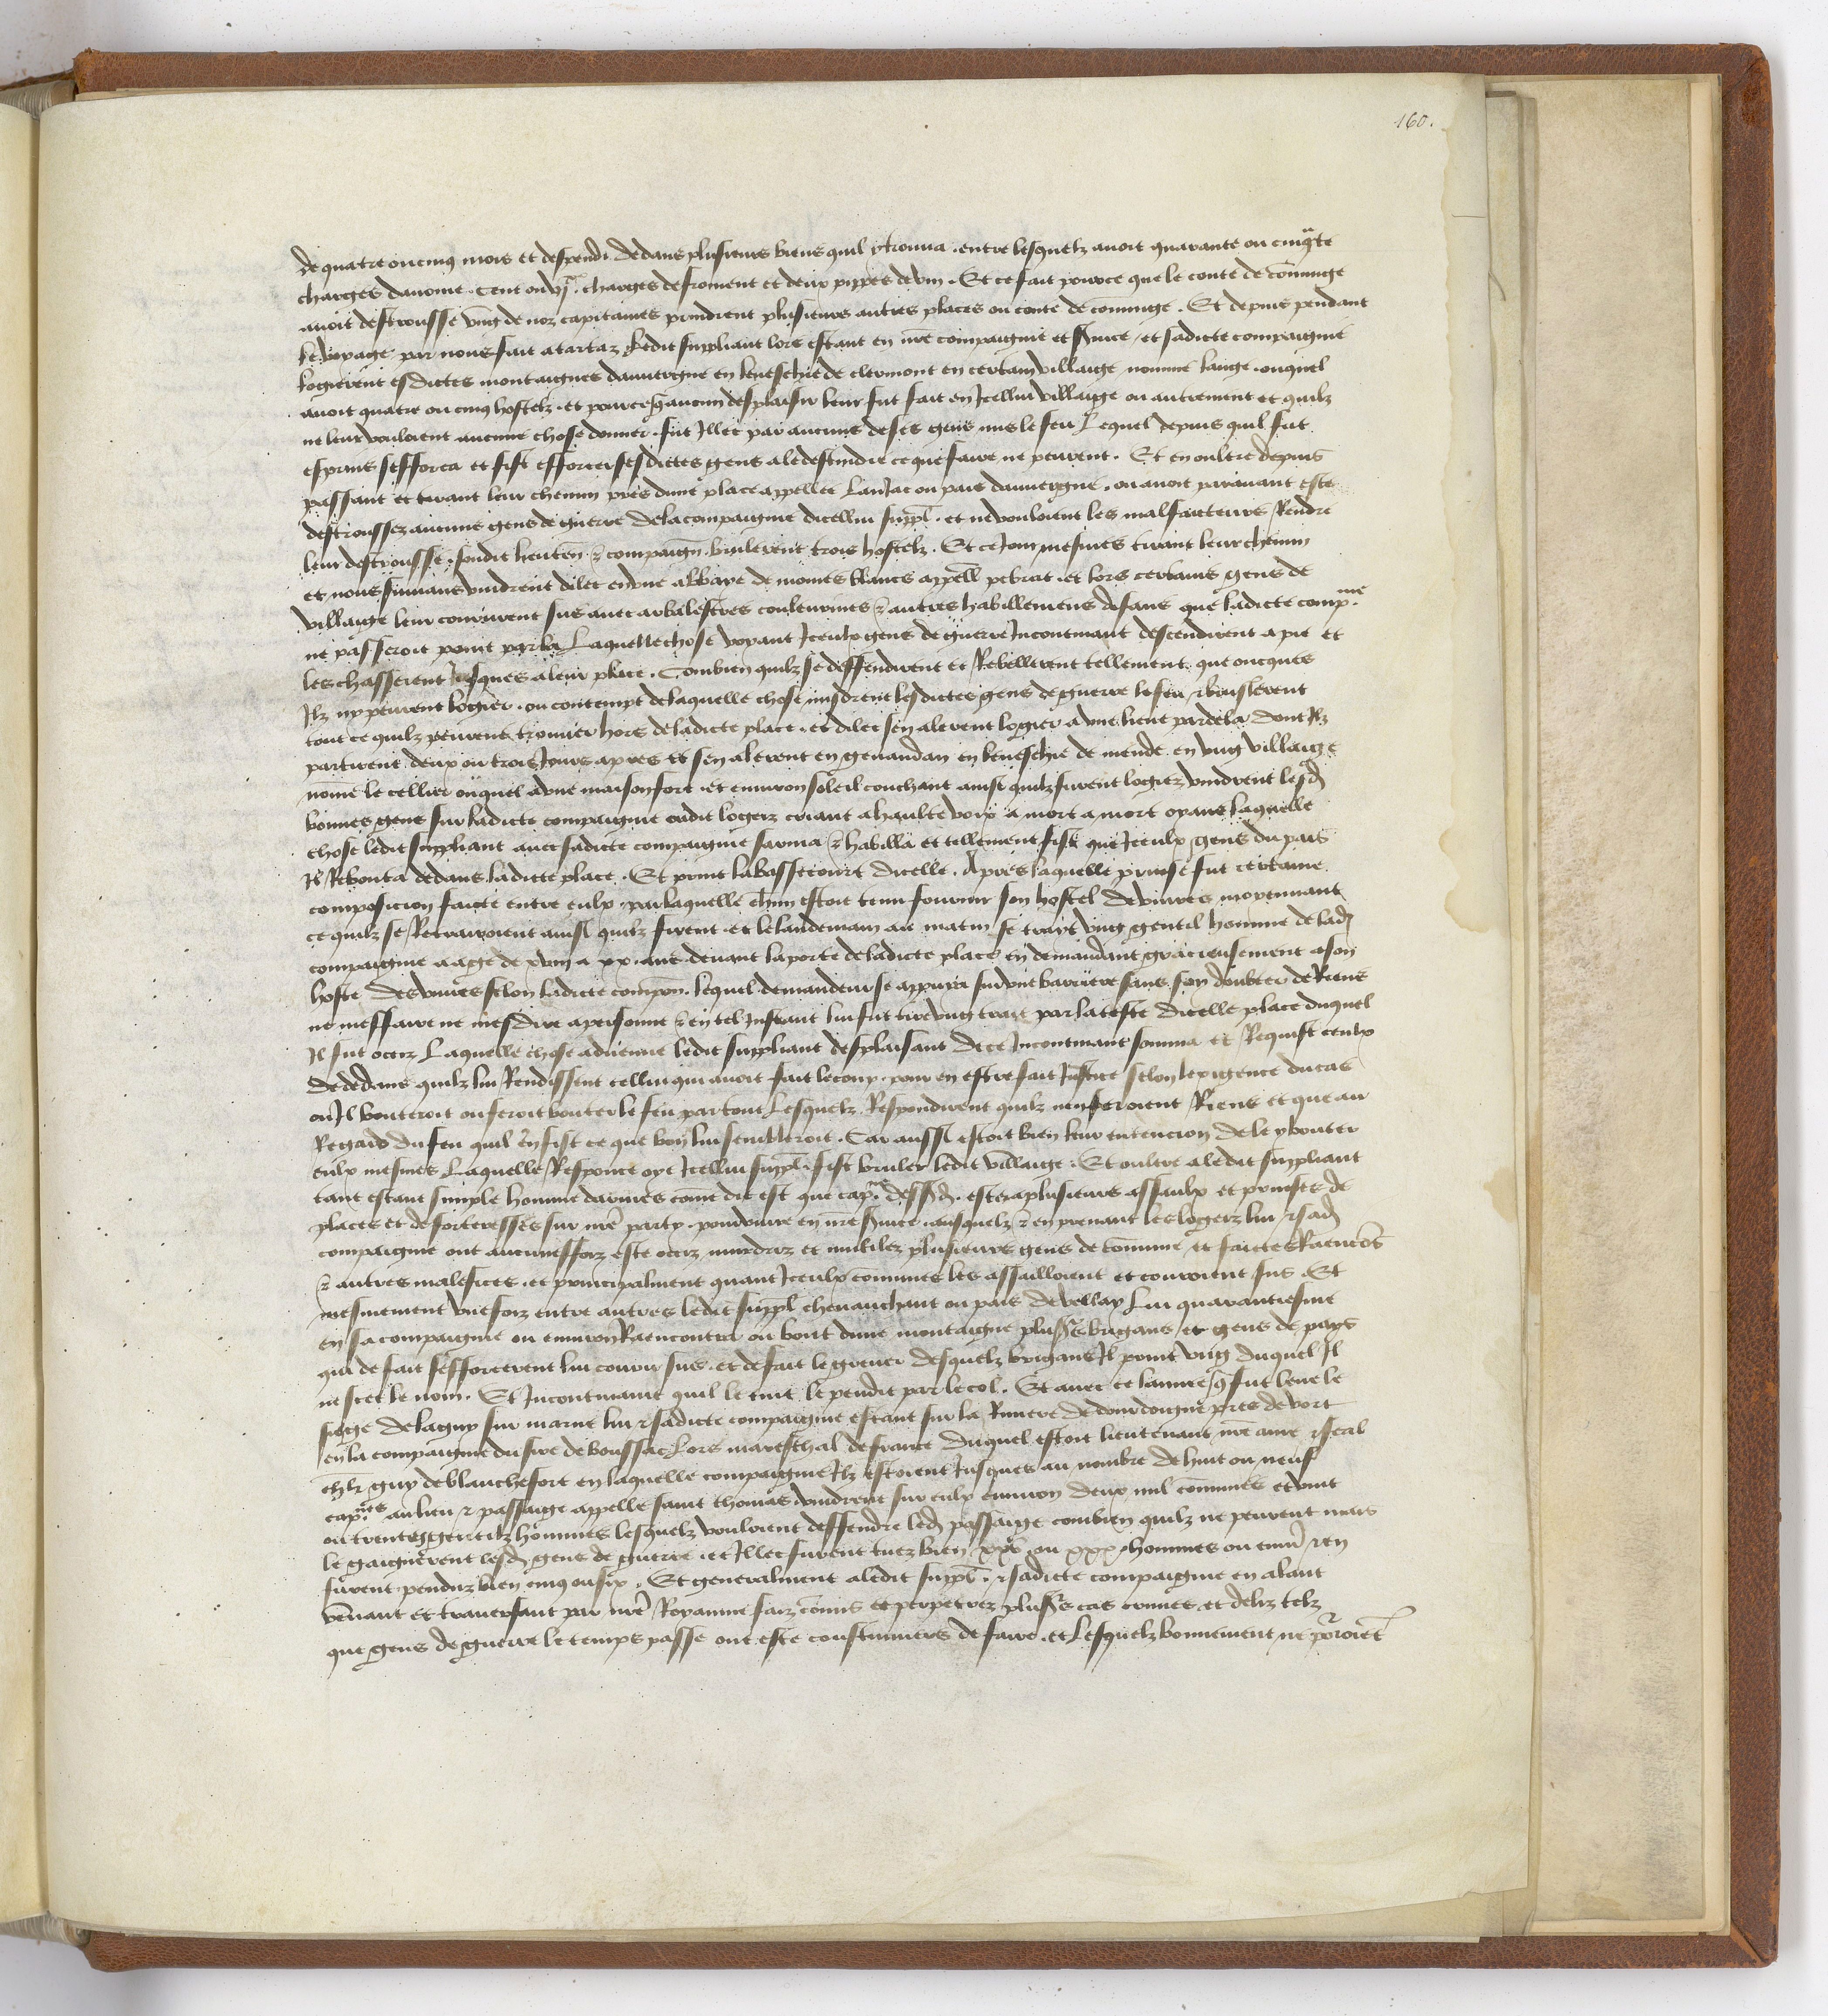 160.
de quatre ou cinq mois et despendi dedans plusieurs biens quil y trouva . entre lesquelz avoit quarante ou cinqte
charges davoine . Cent ou vixx charges de froment et deux pippes de vin . Et ce fait pource que le conte de cominge
avoit destrousse ung de noz capitaines prindrent plusieurs autres places ou conte de cominge . Et depuis pendant
le voyage par nous fait a tartaz Ledit suppliant lors estant en nre compaignie et svice / et sadicte compaignie
logierent esdictes montaignes dauvergne en leveschie de clermont en certain villaige nomme lange . ouquel
avoit quatre ou cinq hostelz . et pource q aucun desplaisir leur fut fait en Icellui villaige ou autrement et quilz
ne leur vouloient aucune chose donner . fut Illec par aucuns de ses gens mis le feu Lequel depuis quil fut
espris sefforca et fist efforcer sesdictes gens a le destaindre ce que faire ne peurent . Et en oultre depuis
passant et tirant leur chemin pres dune place appellee Lanjac ou pais dauvergne . ou avoit paravant este
destroussez aucuns gens de guerre de la compaignie dicellui suppl . et ne vouloient les malfaicteurs Rendre
leur destrousse . sondit lieuten . & compaign . brulerent trois hostelz . Et ce Jour mesmes tirant leur chemin
et nous suivans vindrent dilec en une abbaye de moines blancs appell pebrac . et lors certains gens de
villaige leur coururent sus avec arbalestres couleuvrines & autres habillemens disans que ladicte compme
ne passeroit point par la Laquelle chose voyant Iceulx gens de guerre Incontinant descendirent a pie et
les chasserent Jusques a leur place . Combien quilz se deffendirent et Rebellerent tellement que oncques
Ilz ny peurent logier . ou contempt de laquelle chose misdrent lesdictes gens de guerre le feu & bruslerent
tout ce quilz peurent trouver hors de ladicte place . et dilec sen alerent logier a une lieue par dela dont Ilz
partirent deux ou trois Jours apres et sen alerent en gevaudan en leveschie de mende en ung villaige
nome le cellier ouquel a une maison fort . et environ soleil couchant ainsi quilz furent logiez vindrent lesd
bonnes gens sur ladicte compaignie oudit logeiz criant a haulte voix a mort a mort oyans laquelle
chose ledit suppliant avec sadicte compaignie sarma & habilla et tellement fist que Iceulx gens du pais
Il Rebouta dedans ladicte place . Et print la bassecourt dicelle . Apres laquelle prinse fut certaine
composicion faicte entre eulx . par laquelle chun estoit tenu fournir son hostel de vivres moyennant
ce quilz se Retrairoient ainsi quilz firent . et le landemain au matin se trayt ung gentil homme de lad
compaignie aage de xviii a xx . ans . devant la porte de ladicte place en demandant gracieusement a son
hoste des vivres selon ladicte compon . lequel demandeur se appuya sur une barriere sans soy doubter de Riens
ne meffaire ne mesdire a personne & en tel Instant lui fut tire ung trait par la teste dicelle place duquel
Il fut occiz Laquelle chose advenue ledit suppliant desplaisant de ce Incontinant somma et Requist ceulx
de dedans quilz lui Rendissent cellui qui avoit fait le coup . pour en estre fait Justice selon lexigence du cas
ou Il bouteroit ou feroit bouter le feu par tout Lesquelz Respondirent quilz nen feroient Riens et que au
Regard du feu quil en fist ce que bon lui sembleroit . Car aussi estoit bien leur entencion de le y bouter
eulx mesmes Laquelle Responce oye Icellui suppl . fist bruler ledit villaige . Et oultre a ledit suppliant
tant estant simple homme darmes come dit est que capne dessd . este a plusieurs assaulx et prinses de
places et de forteresses sur nre party . pour vivre en nre svice . ausquelz & en prenant les logeiz lui & sad
compaignie ont aucuneffoiz este occiz murdriz et mutilez plusieurs gens de comune et faictes Raencons
& autres malefices . et principalment quant Iceulx communes les assailloient et couroient sus . Et
mesmement une foiz entre autres ledit suppl chevauchant ou pais de vellay Lui quarantiesme
en sa compaignie ou environ Raencontra ou bout dune montaigne plusrs brigans et gens de pays
qui de fait sefforcerent lui courir sus . et de fait le grever desquelz brigans Il print ung duquel Il
ne scet le nom . Et Incontinant quil le tint le pendit par le col . Et avec ce lannee q fut leve le
siege de lagny sur marne lui & sadicte compaignie estant sur la Riviere de dourdoigne pres de bort
en la compaignie du sire de boussac Lors mareschal de france duquel estoit lieutenant nre ame & feal
chlr guy de blanchefort en laquelle compaignie Ilz estoient Jusques au nombre de huit ou neuf
capnes au lieu & passaige appelle saint thomas vindrent sur eulx environ deux mil communes et vint
ou trente gentilz hommes lesquelz vouloient deffendre led passaige combien quilz ne peurent mais
le gaignerent lesd gens de guerre . et Illec furent tuez bien xxv . ou xxx . hommes ou envir & en
furent penduz bien cinq ou six . Et generalment a ledit suppl . & sadicte compaignie en alant
venant et traversant par nre Royaume faiz comis et perpetrez plusrs cas crimes et deliz telz
que gens de guerre le temps passe ont este coustumiers de faire . et Lesquelz bonnement ne porroiet